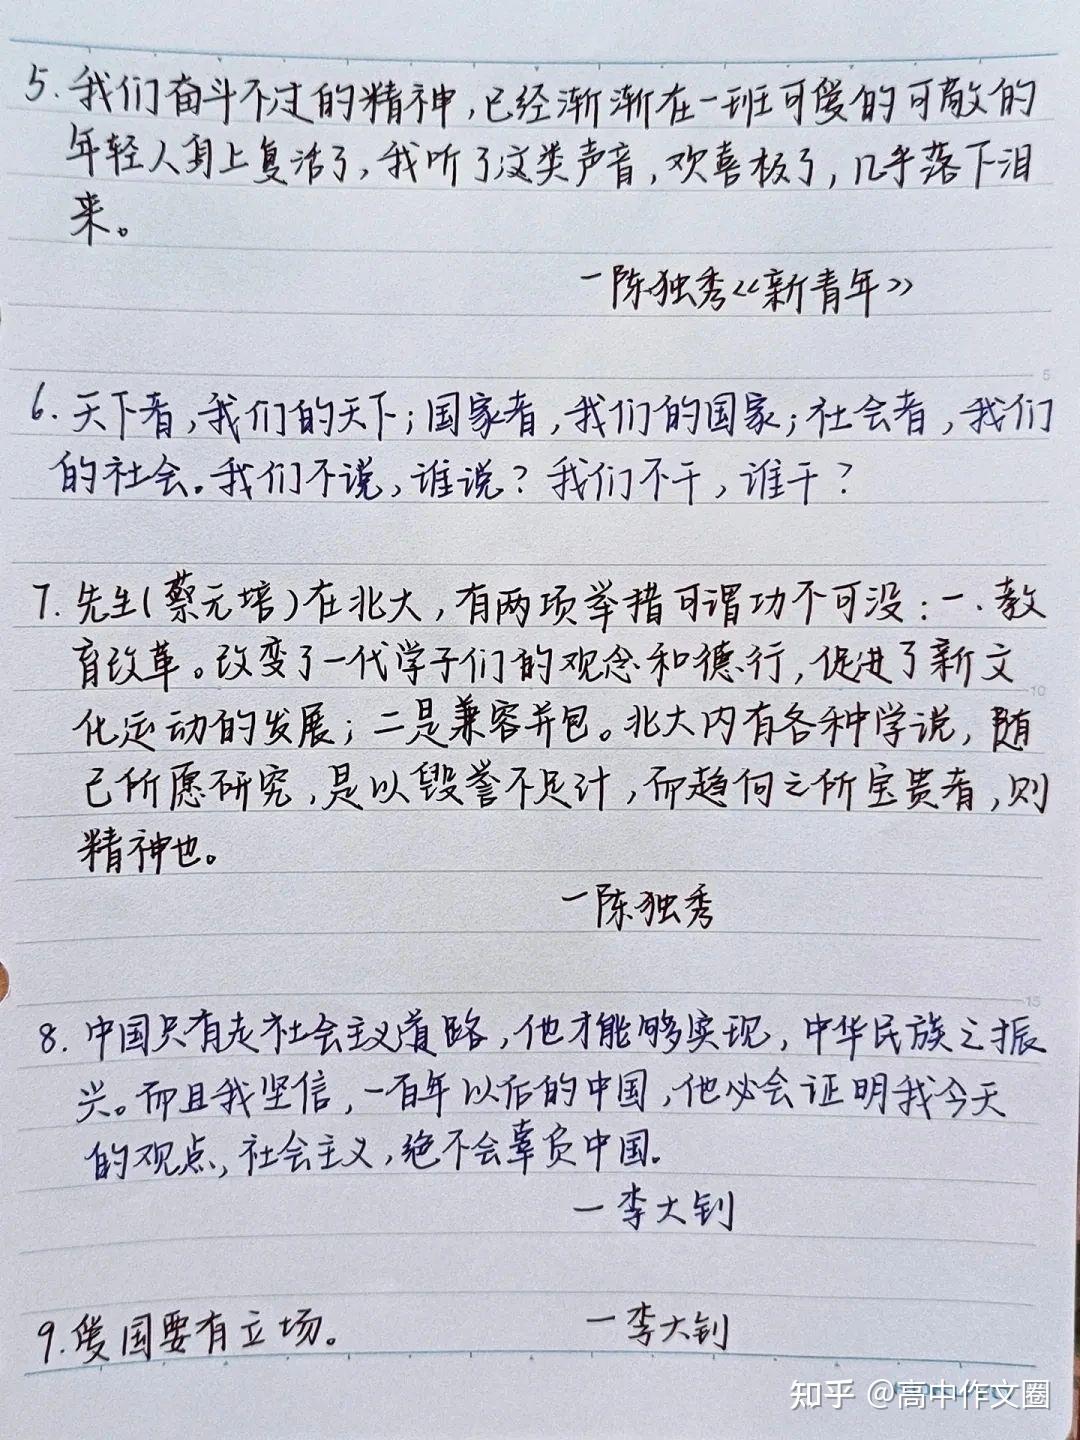 5. 我们奋斗不过的精神，已经渐渐在一班可爱的可敬的
年轻人身上复活了，我听了这类声音，欢喜极了，几乎落下泪
来。
—陈独秀《新青年》
5
6. 天下者，我们的天下；国家者，我们的国家；社会者，我们
的社会。我们不说，谁说？我们不干，谁干？
7. 先生(蔡元培)在北大，有两项举措可谓功不可没：一、教
育改革。改变了一代学子们的观念和德行，促进了新文
10
化运动的发展；二是兼容并包。北大内有各种学说，随
己所愿研究，是以毁誉不足计，而趋向之所宝贵者，则
精神也。
—陈独秀
15
8. 中国只有走社会主义道路，他才能够实现，中华民族之振
兴。而且我坚信，一百年以后的中国，他必会证明我今天
的观点，社会主义，绝不会辜负中国。
—李大钊
9. 爱国要有立场。 —李大钊
知乎 @高中作文圈